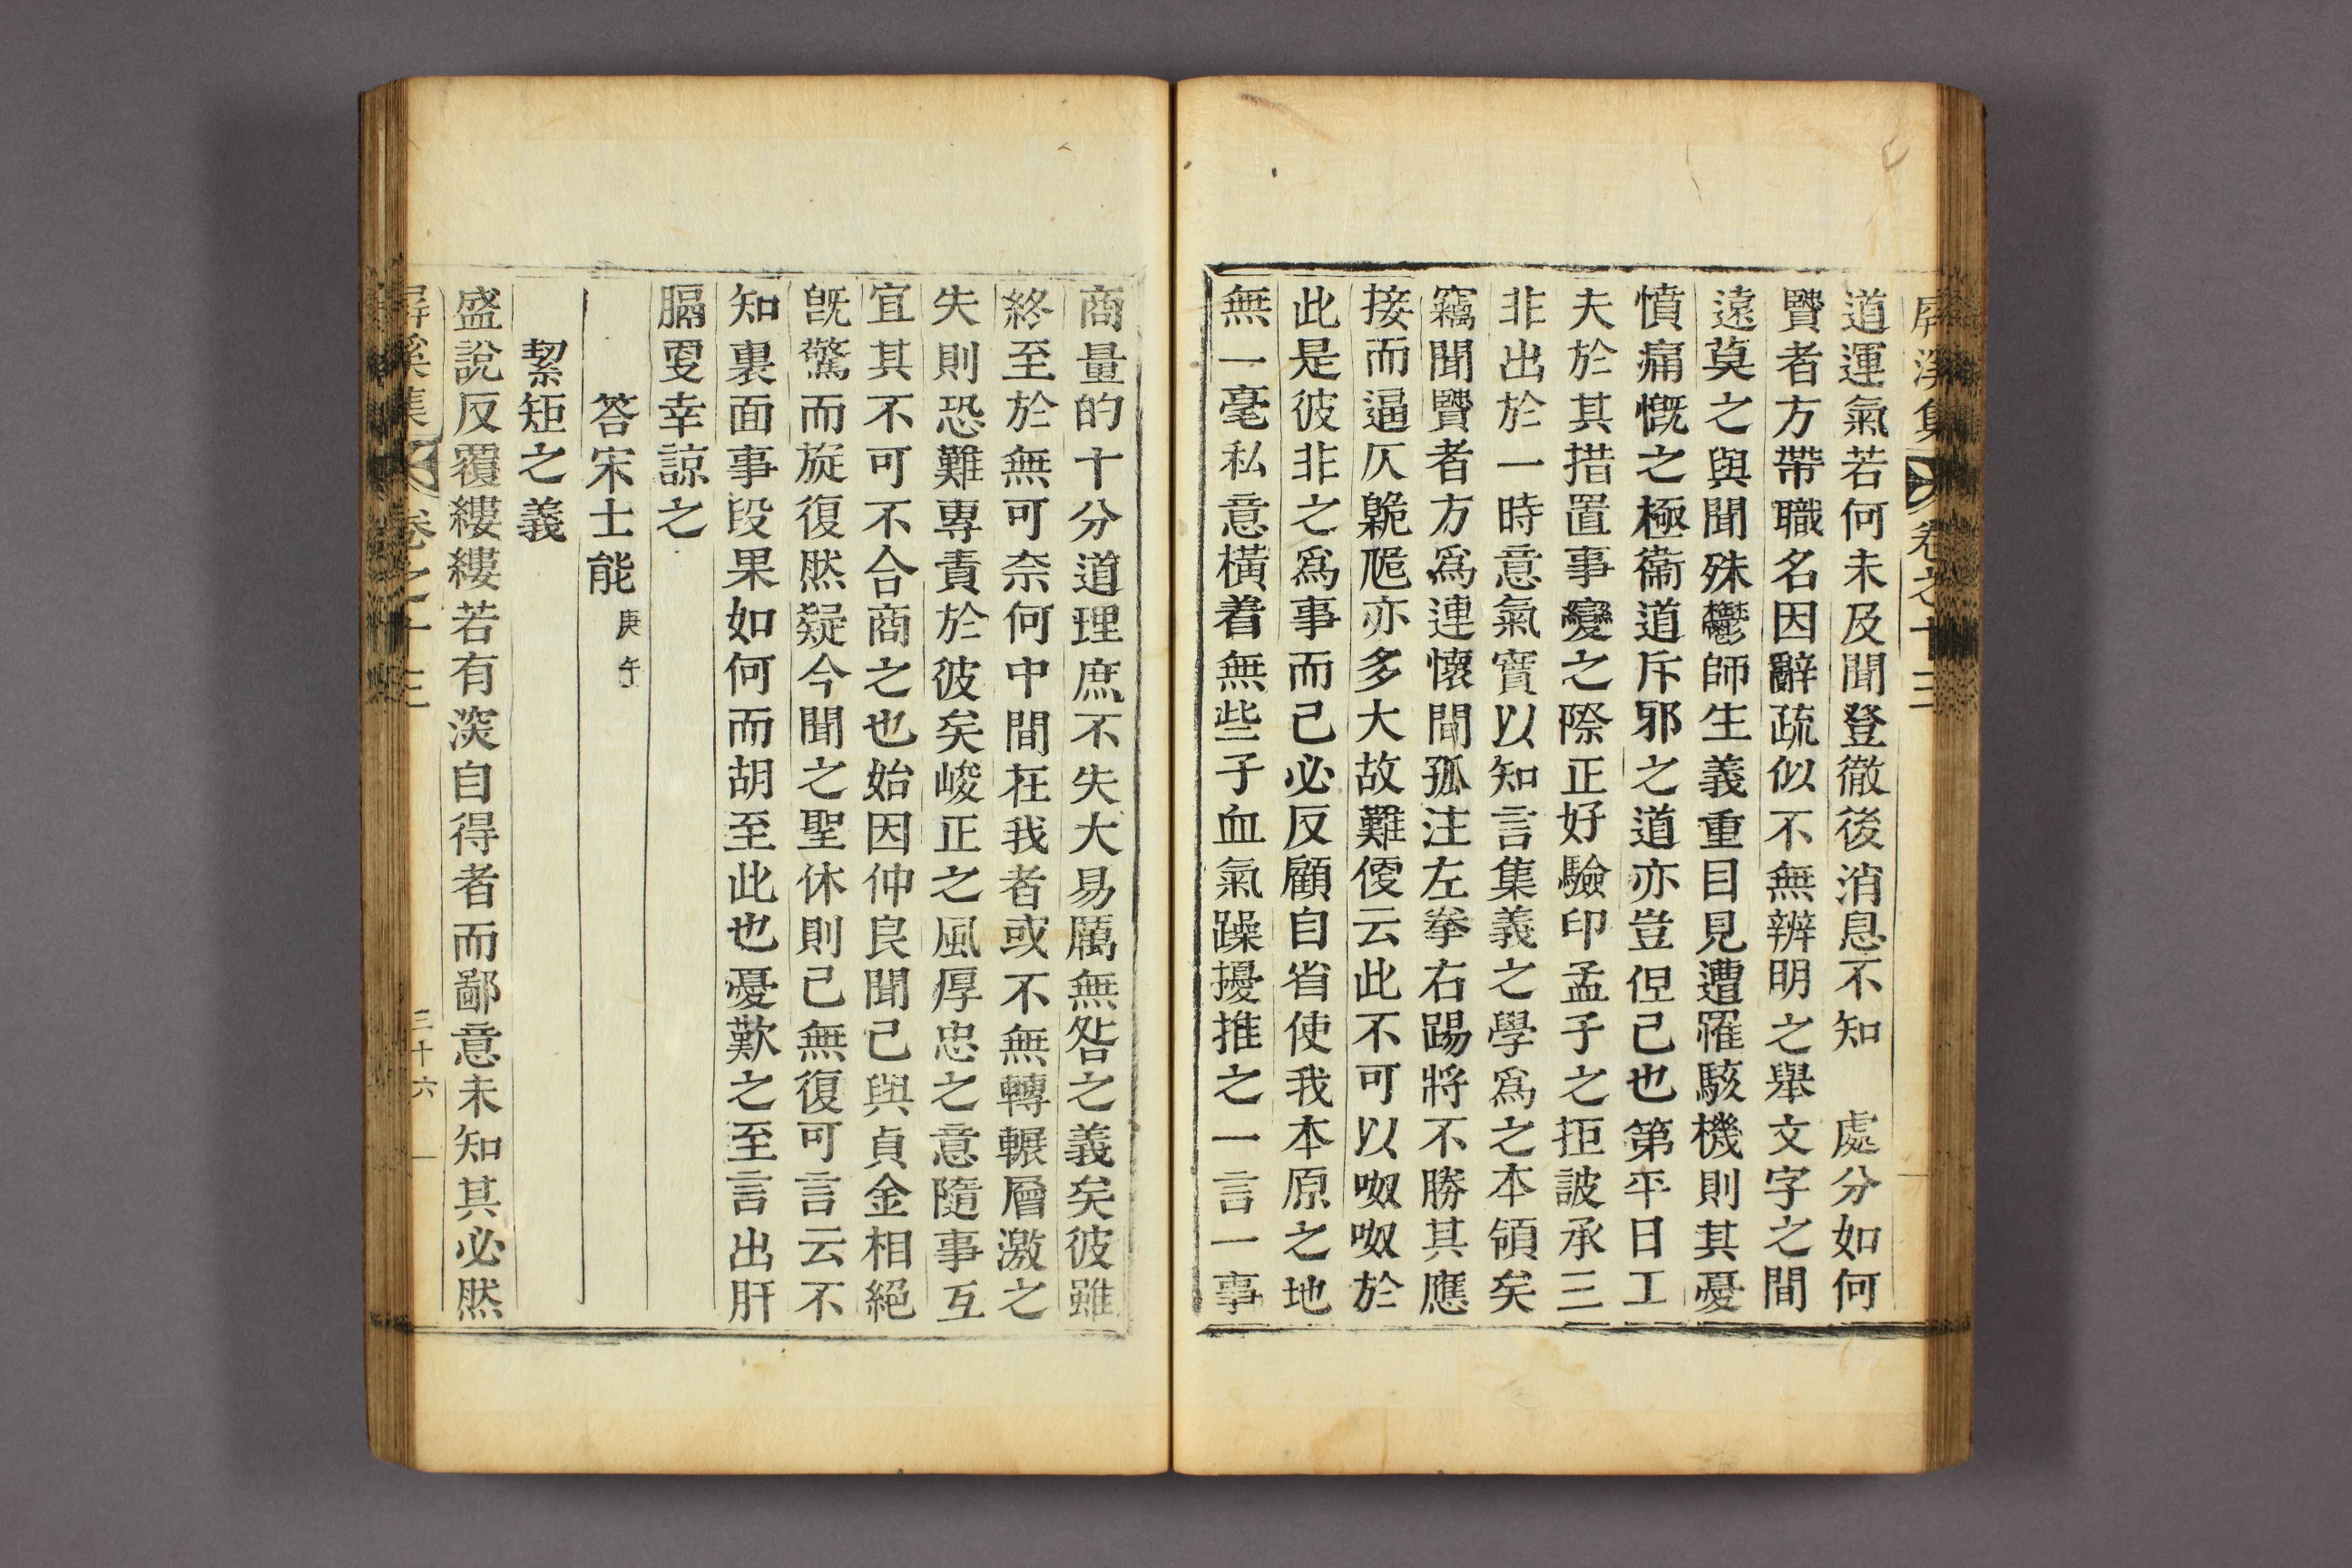 屛溪集 卷之十三
道運氣若何未及聞登徹後消息不知　處分如何
贒者方帶職名因辭疏似不無辨明之舉文字之間
遠莫之與聞殊鬱師生義重目見遭罹駭機則其憂
憤痛慨之極衞道斥邪之道亦豈但已也第平日工
夫於其措置事變之際正好驗印孟子之拒詖承三
非出於一時意氣實以知言集義之學爲之本領矣
竊聞贒者方爲連懷間孤注左拳右踢將不勝其應
接而逼仄臲卼亦多大故難優云此不可以呶呶於
此是彼非之爲事而己必反顧自省使我本原之地
無一毫私意橫着無些子血氣躁擾推之一言一事
商量的十分道理庶不失大易厲無咎之義矣彼雖
終至於無可奈何中間在我者或不無轉輾層激之
失則恐難專責於彼矣峻正之風厚忠之意隨事互
宜其不可不合商之也始因仲良聞己與貞金相絕
旣驚而旋復然疑今聞之聖休則己無復可言云不
知裏面事段果如何而胡至此也憂歎之至言出肝
膈更幸諒之
答宋士能 庚午
絜矩之義
盛說反覆縷縷若有深自得者而鄙意未知其必然
屛溪集 卷之十三 三十六